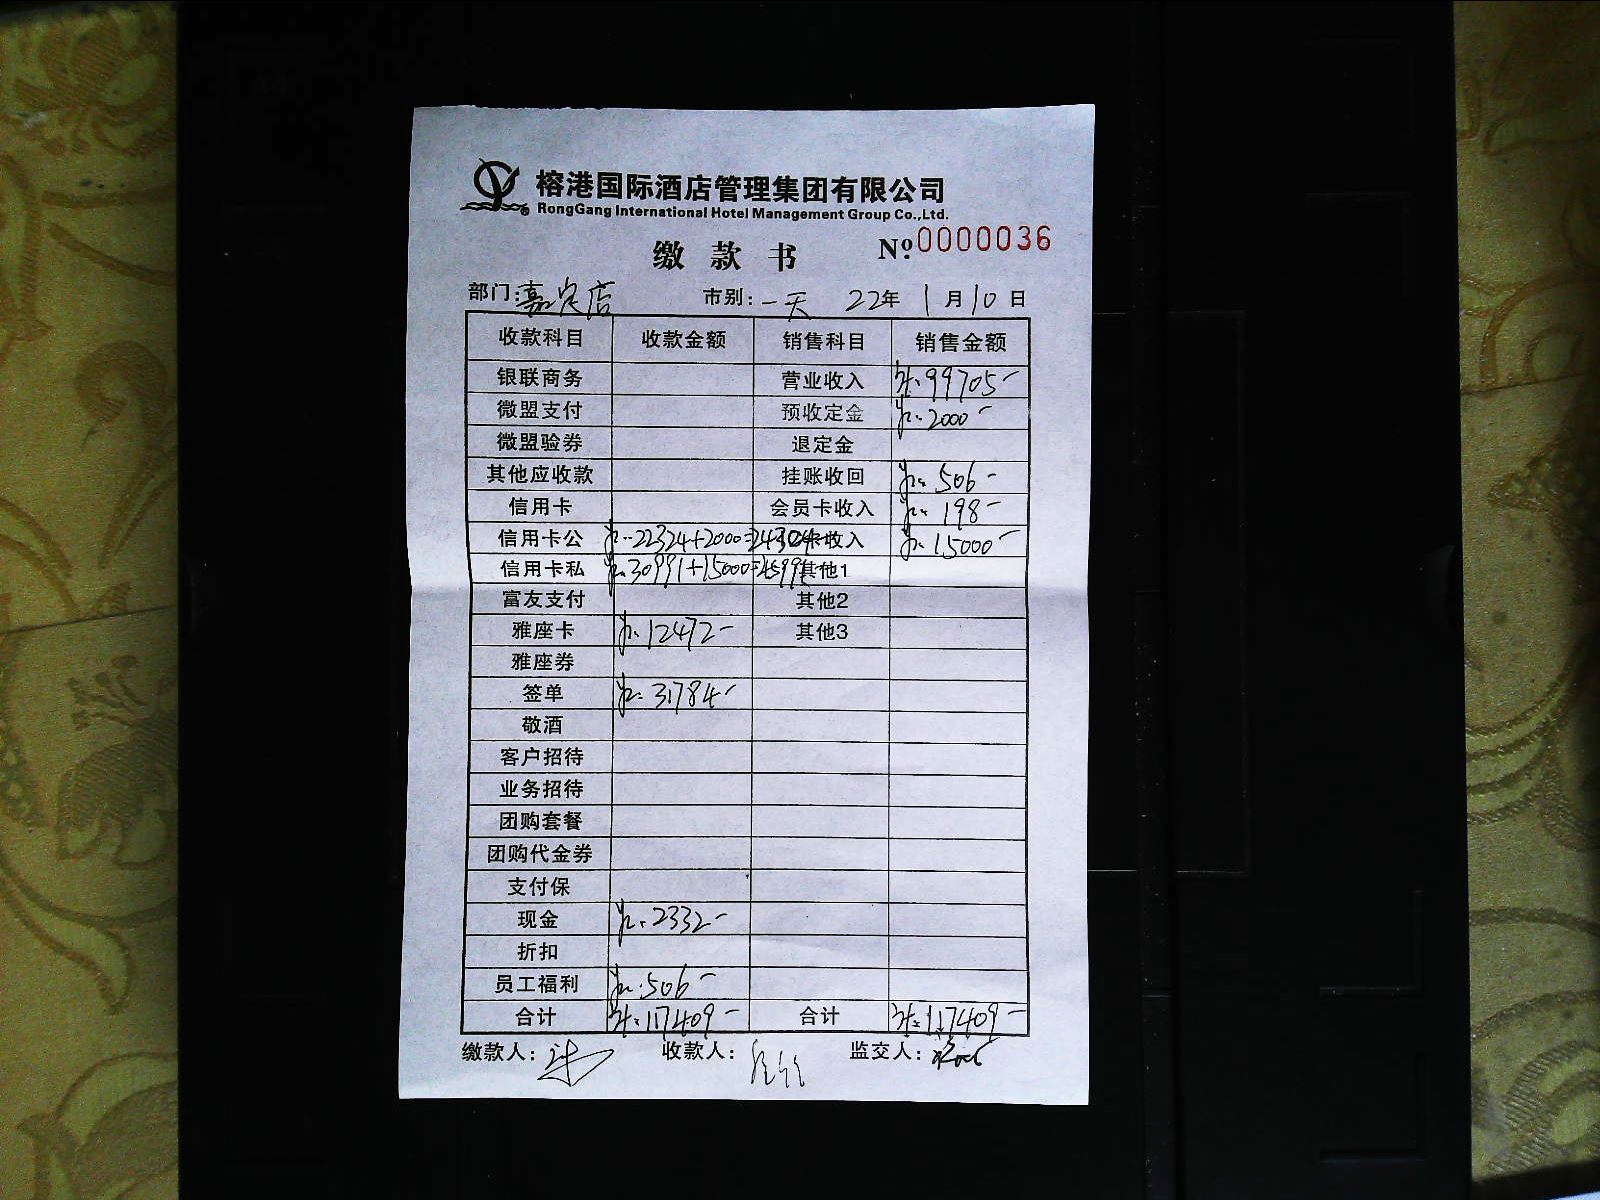 榕港国际酒店管理集团有限公司
RongGang International Hotel Management Group Co.,Ltd.
缴款书 Nº:0000036
部门:嘉定店 市别:一天 22年1月10日
收款科目 收款金额 销售科目 销售金额
银联商务 营业收入 ¥:99705-
微盟支付 预收定金 ¥:2000-
微盟验券 退定金
其他应收款 挂账收回 ¥:506-
信用卡 会员卡收入 ¥:198-
信用卡公 ¥:22324+2000=24324 卡收入 ¥:15000-
信用卡私 ¥:30991+15000=45991 其他1
富友支付 其他2
雅座卡 ¥:12472- 其他3
雅座券
签单 ¥:31784-
敬酒
客户招待
业务招待
团购套餐
团购代金券
支付保
现金 ¥:2332-
折扣
员工福利 ¥:506-
合计 ¥:117409- 合计 ¥:117409-
缴款人: 收款人: 监交人: